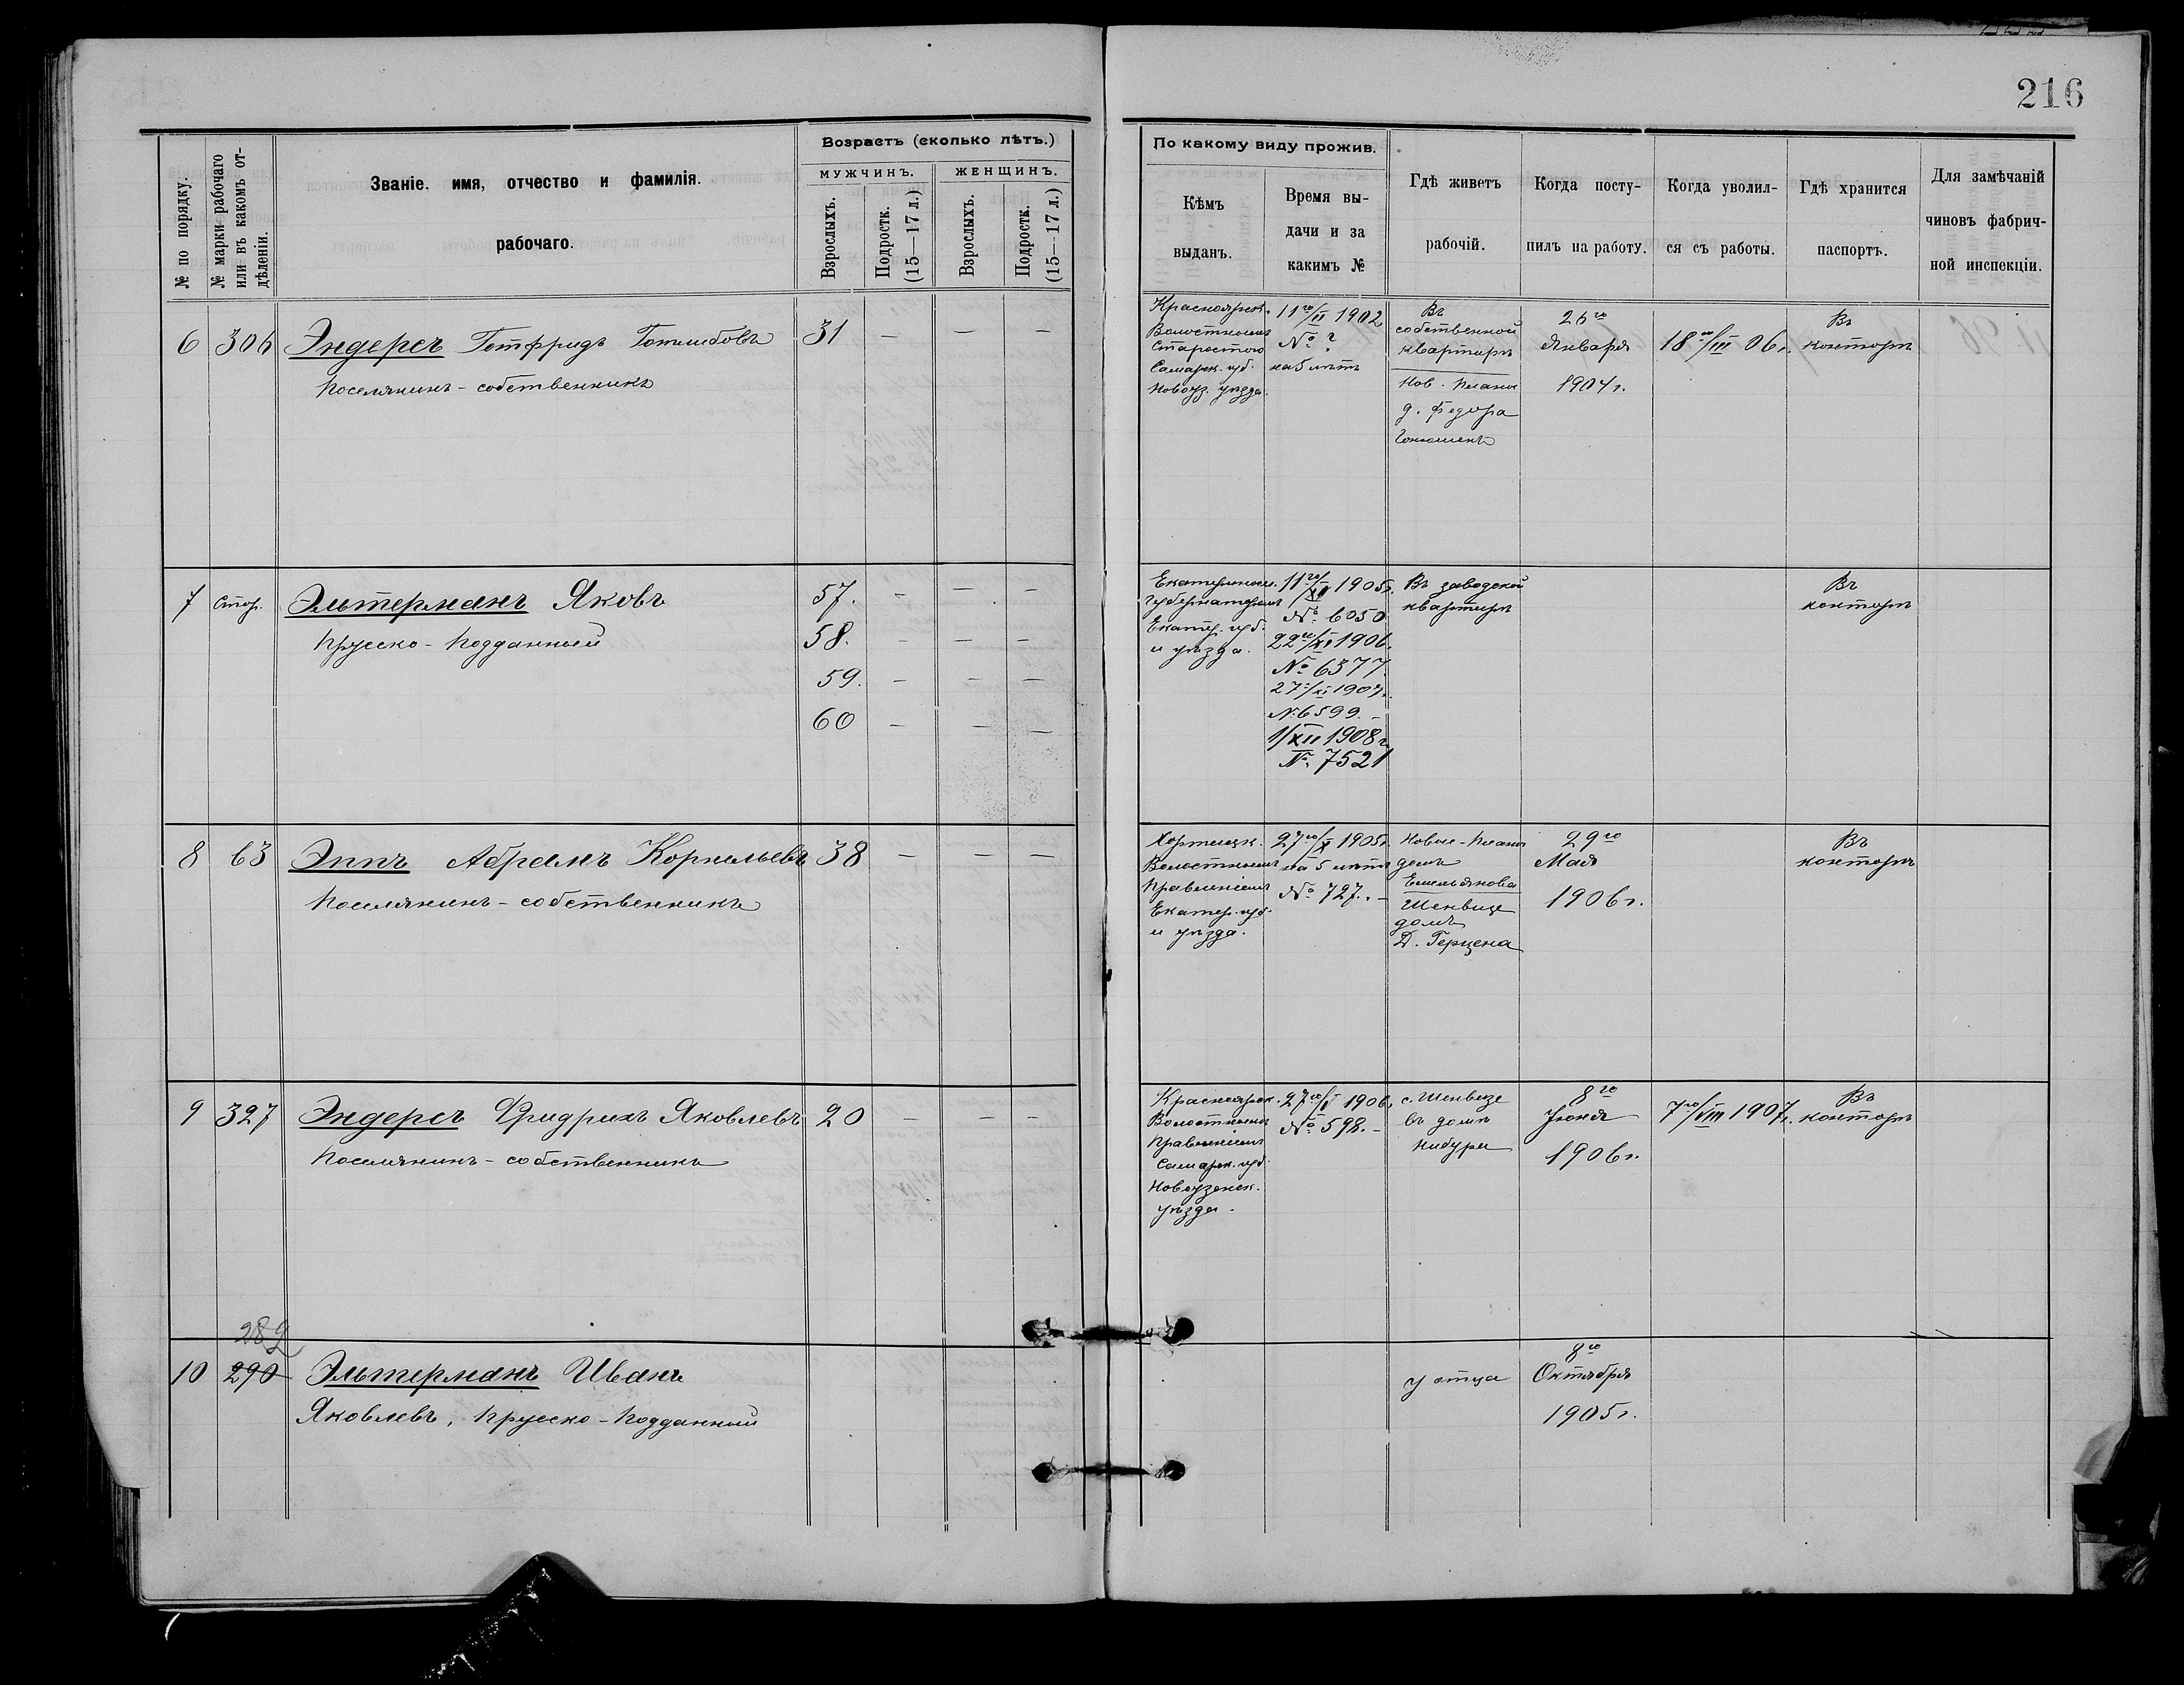 216
№ по порядку.
№ марки рабочаго
или въ какомъ от-
дѣленіи.
Званіе. имя, отчество и фамилія.
рабочаго.
Возрастъ (сколько лѣтъ.)
МУЖЧИНЪ.
ЖЕНЩИНЪ.
Взрослыхъ.
Подростк.
(15—17 л.)
Взрослыхъ.
Подростк.
(15—17 л.)
По какому виду прожив.
Кѣмъ
выданъ.
Время вы-
дачи и за
какимъ №
Гдѣ живетъ
рабочій.
Когда посту-
пилъ на работу.
Когда уволил-
ся съ работы.
Гдѣ хранится
паспортъ.
Для замѣчаній
чиновъ фабрич-
ной инспекціи.
6 306 Эндерсъ Готфридъ Готлибовъ 31 — — —
Поселянинъ-собственникъ
Красноярск.
Волостнымъ
Старостою
Самарск. губ.
Новоуз. уѣзда.
11го/II 1902
№ ?
на 5 лѣтъ
Въ
собственной
квартирѣ
Нов. Планы
д. Федора
26го
Января
1904 г.
18го/III 06 г.
Въ
конторѣ
7 Стор. Эльтерманъ Яковъ 57. — — —
Прусско-подданный 58. — — —
59. — — —
60 — — —
Екатериносл.
Губернаторомъ
Екатер. губ.
и уѣзда.
11го/XI 1905 г.
№ 6050
22го/XI 1906.
№ 6377.
27го/XI 1907 г.
№ 6599. —
1/XII 1908 г.
№ 7521
Въ заводской
квартирѣ
Въ
конторѣ
8 63 Эппъ Абрамъ Корнельевъ 38 — — —
Поселянинъ-собственникъ
Хортицк.
Волостнымъ
Правленіемъ
Екатер. губ.
и уѣзда.
27го/X 1905 г.
на 5 лѣтъ
№ 727. —
Новые-Планы
домъ
Емельянова
Шенвизе
домъ
Д. Герцена
29го
Мая
1906 г.
Въ
конторѣ
9 327 Эндерсъ Фридрихъ Яковлевъ 20 — — —
Поселянинъ-собственникъ
Красноярск.
Волостнымъ
Правленіемъ
Самарск. губ.
Новоузенск.
уѣзда.
27го/V 1906 г.
№ 598. —
с. Шенвизе
въ домѣ
Нибура
8го
Іюня
1906 г.
7го/VIII 1907 г.
Въ
конторѣ
289
10 290 Эльтерманъ Иванъ
Яковлевъ, Прусско-подданный
у отца
8го
Октября
1905 г.